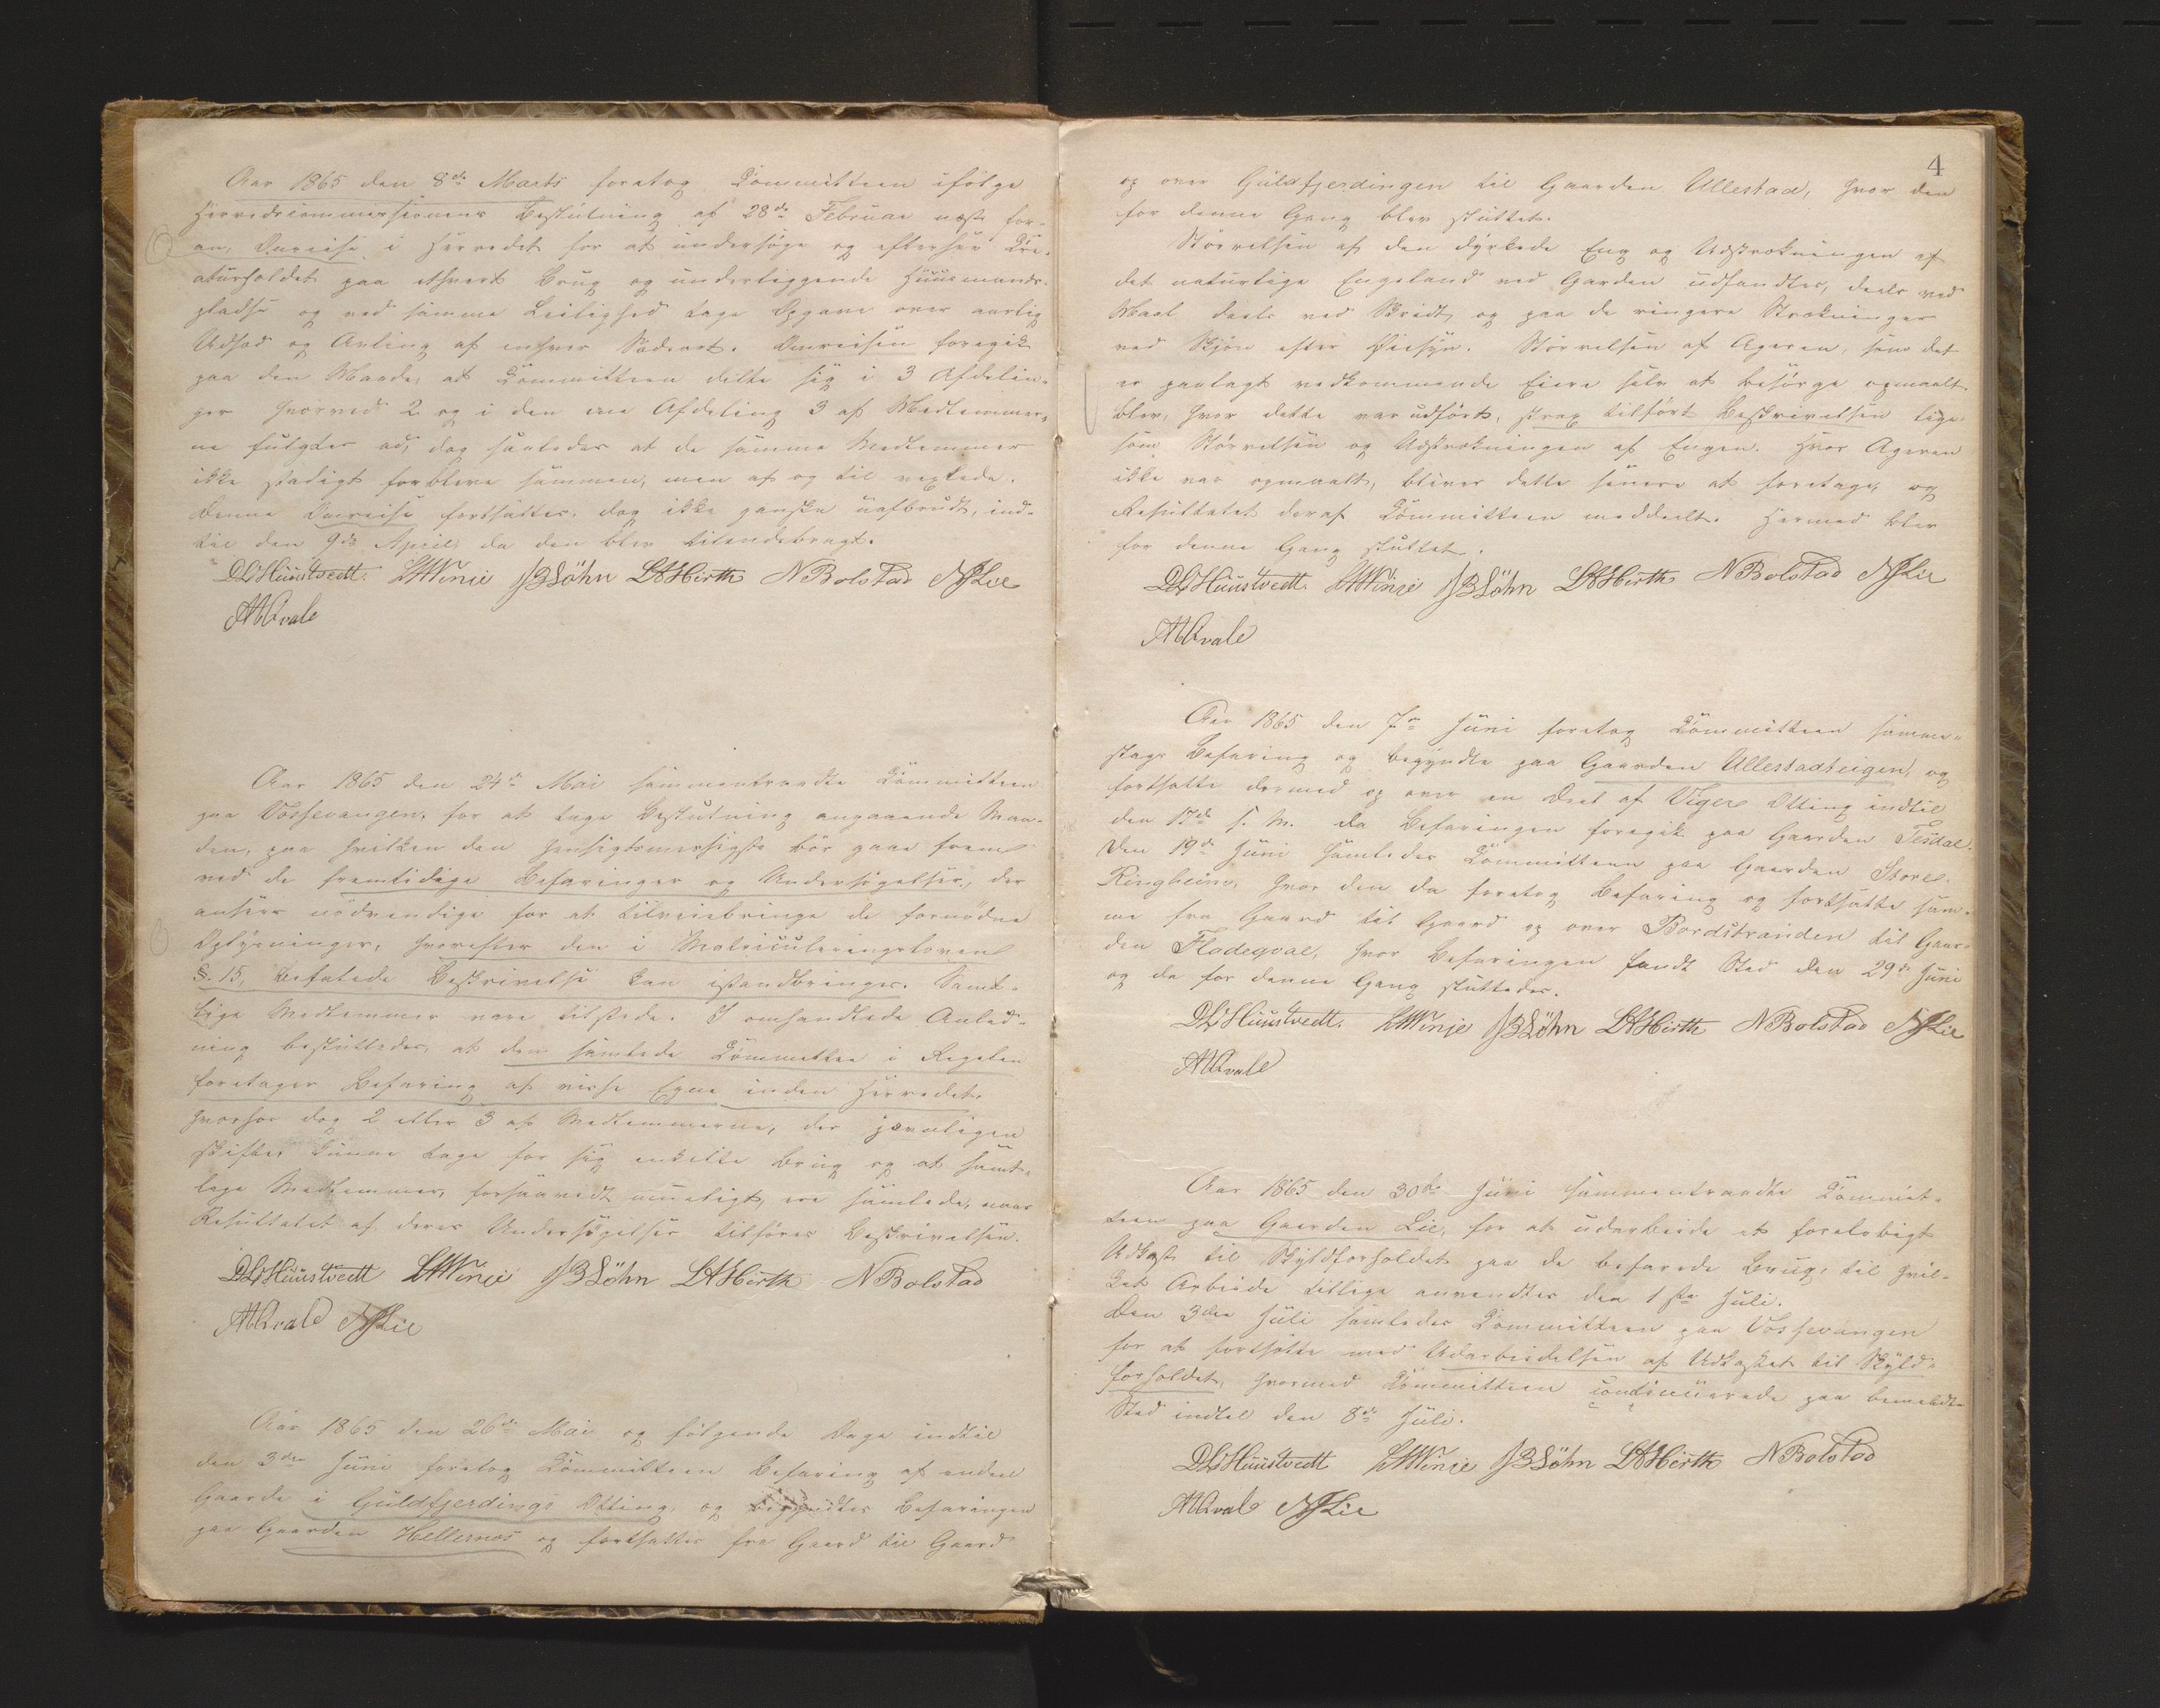 Aar 1865 den 8de Marts foretog Committeen ifølge
Herredscommissionens Beslutning af 28de Februar næst for-
an, Omreise i Herredet for at undersøge og efterser Cre-
aturholdet paa ethvert Brug og underliggende Huusmands-
pladse og ved samme Leilighed tage Opgave over aarlig
Udsæd og Avling af enhver Sædeart. Omreisen foregik
paa den Maade, at Committeen delte sig i 3 Afdelin-
ger hvorved 2 og i den ene Afdeling 3 af Medlemmer-
ne fulgtes ad, dog saaledes at de samme Medlemmer
ikke stadigt forbleve sammen, men af og til vexlede.
Denne Omreise fortsattes, dog ikke ganske uafbrudt, ind-
til den 9de April, da den blev tilendebragt.
DLHuustvedt. LHVinje JBLöhn LAHirth N Bolstad NJLie
AMQvale
Aar 1865 den 24de Mai sammentraadte Committeen
paa Vossevangen, for at tage Beslutning angaaende Maa-
den, paa hvilken den hensigtsmæssigste bør gaae frem
ved de fremtidige Befaringer og Undersøgelser, der
ansees nødvendige for at tilveiebringe de fornødne
Oplysninger, hvorefter den i Matriculeringslovens
§. 15, befalede Beskrivelse kan istandbringes. Samt-
lige Medlemmer vare tilstede. I omhandlede Anled-
ning besluttedes, at den samlede Committee i Regelen
foretager Befaring af visse Egne inden Herredet,
hvorfor dog 2 eller 3 af Medlemmerne, der jævnligen
skifter, kunne tage for sig enkelte Brug og at samt-
lige Medlemmer, forsaavidt mueligt, ere samlede, naar
Resultatet af deres Undersøgelser tilføres Beskrivelsen.
DLHuustvedt LHVinje JBLöhn LAHirth N Bolstad
AMQvale NJLie
Aar 1865 den 26de Mai og følgende Dage indtil
den 3die Juni foretog Committeen Befaring af endeel
Gaarde i Guldfjerdings Otting, og begyndtes Befaringen
paa Gaarden Hellernæs og fortsattes fra Gaard til Gaard
4
op over Guldfjerdingen til Gaarden Ullestad, hvor den
for denne Gang blev sluttet.
Størrelsen af den dyrkede Eng og Udstrækningen af
det naturlige Engeland ved Garden udfandtes, deels ved
Maal deels ved Skridt, og paa de ringere Strækninger
ved Skjøn efter Øiesyn. Størrelsen af Ageren, som det
er paalagt vedkommende Eiere selv at besørge opmaalt
blev, hvor dette var udført, strax tilført Beskrivelsen lige-
som Størrelsen og Udstrækningen af Engen. Hvor Ageren
ikke var opmaalt, bliver dette senere at foretage, og
Resultatet deraf Committeen meddeelt. Hermed blev
for denne Gang sluttet.
DLHuustvedt. LHVinje JBLöhn LAHirth N Bolstad NJLie
AMQvale
Aar 1865 den 7de Juni foretog Committeen samme-
slags Befaring og begyndte paa Gaarden Ullestadteigen, og
fortsatte dermed op over en Deel af Vigers Otting indtil
den 17de s. M. da Befaringen foregik paa Gaarden Tesdal.
Den 19de Juni samledes Committeen paa Gaarden Store
Ringheim, hvor den da foretog Befaring og fortsatte sam-
me fra Gaard til Gaard op over Bordstranden til Gaar-
den Fladeqval, hvor Befaringen fandt Sted den 29de Juni
og da for denne Gang sluttedes.
DLHuustvedt. LHVinje JBLöhn LAHirth N Bolstad NJLie
AMQvale
Aar 1865 den 30te Juni sammentraadte Commit-
teen paa Gaarden Lie, for at udarbeide et foreløbigt
Udkast til Skyldforholdet paa de befarede Brug, til hvil-
ket Arbeide tillige anvendtes den 1ste Juli.
Den 3die Juli samledes Committeen paa Vossevangen
for at fortsætte med Udarbeidelsen af Udkastet til Skyld-
forholdet, hvormed Committeen continuerede paa bemeldte
Sted indtil den 8de Juli.
DLHuustvedt LHVinje JBLöhn LAHirth N Bolstad
AMQvale NJLie